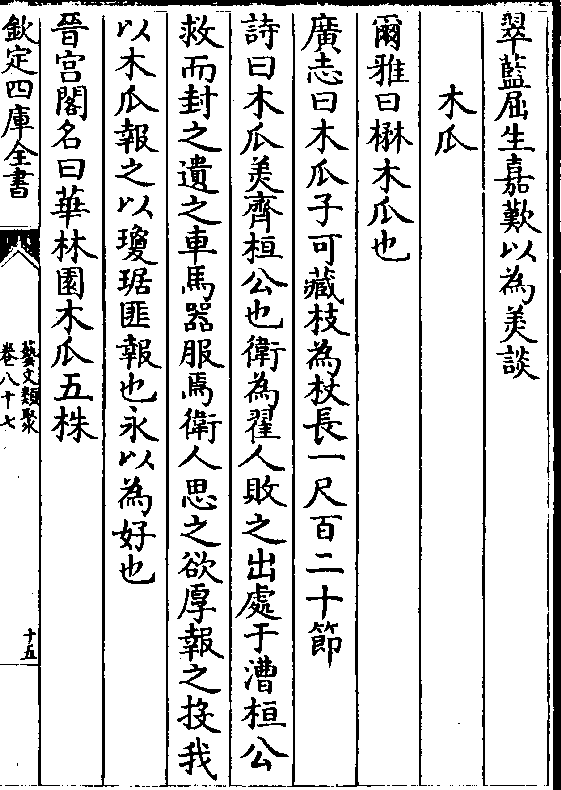 翠藍屈生嘉歎以為美談
木瓜
爾雅曰楙木瓜也
廣志曰木瓜子可藏枝為杖長一尺百二十節
詩曰木瓜美齊桓公也衛為翟人敗之出處于漕桓公
救而封之遺之車馬器服焉衛人思之欲厚報之投我
以木瓜報之以瓊琚匪報也永以為好也
晉宮閣名曰華林園木瓜五株
欽定四庫全書
藝文類聚
卷八十七
十五